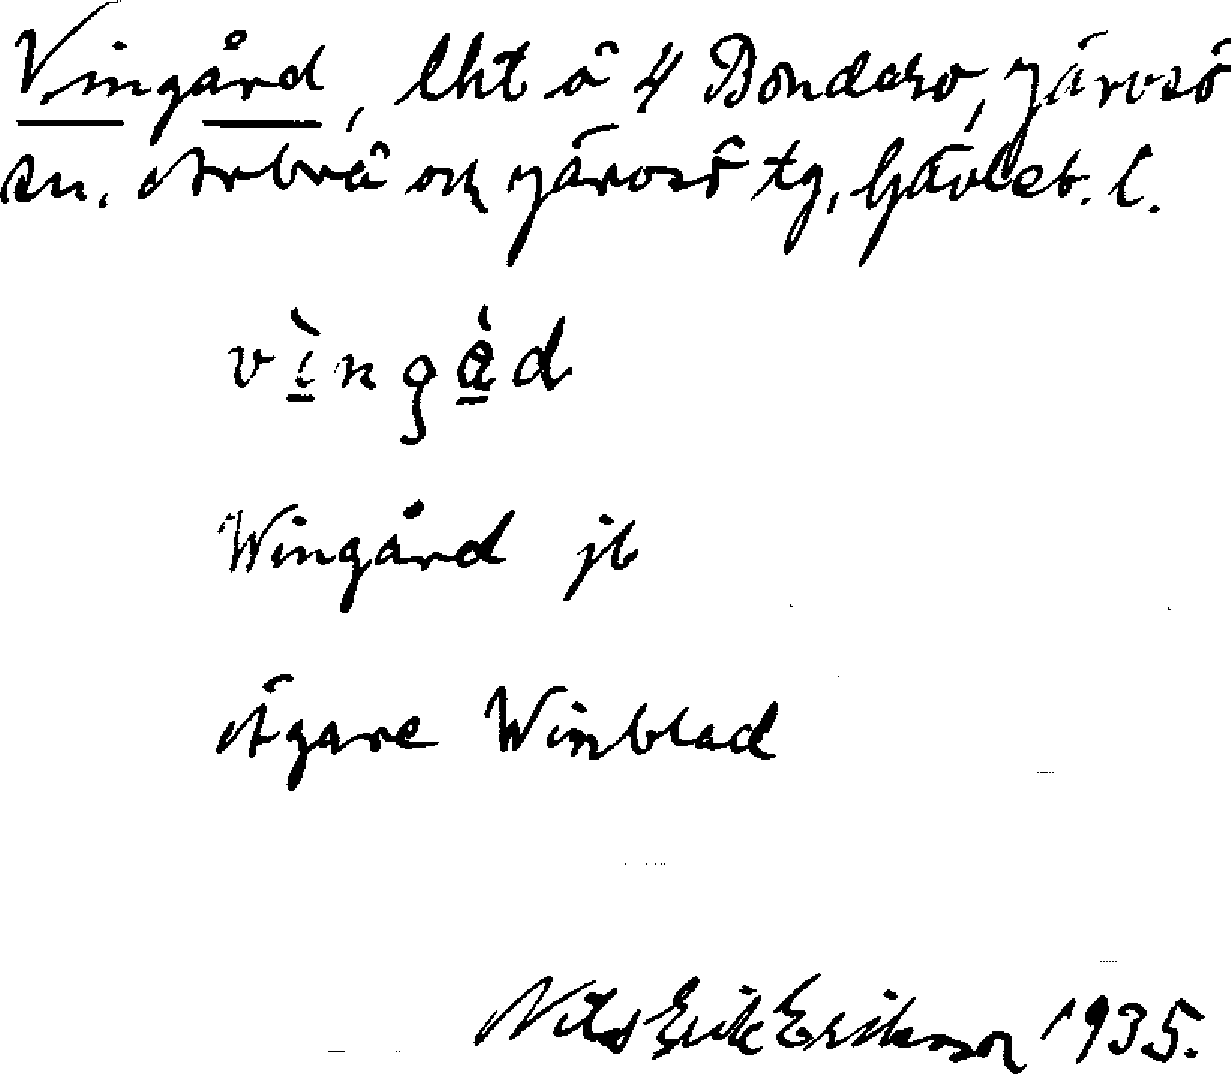 Vingård, lht å 4 Bondarv, Järvsö
sn. Arbrå och Järvsö tg, Gävleb. l.
vìngàd
Wingård jb
Ägare Winblad
Nils Erik Eriksson 1935.